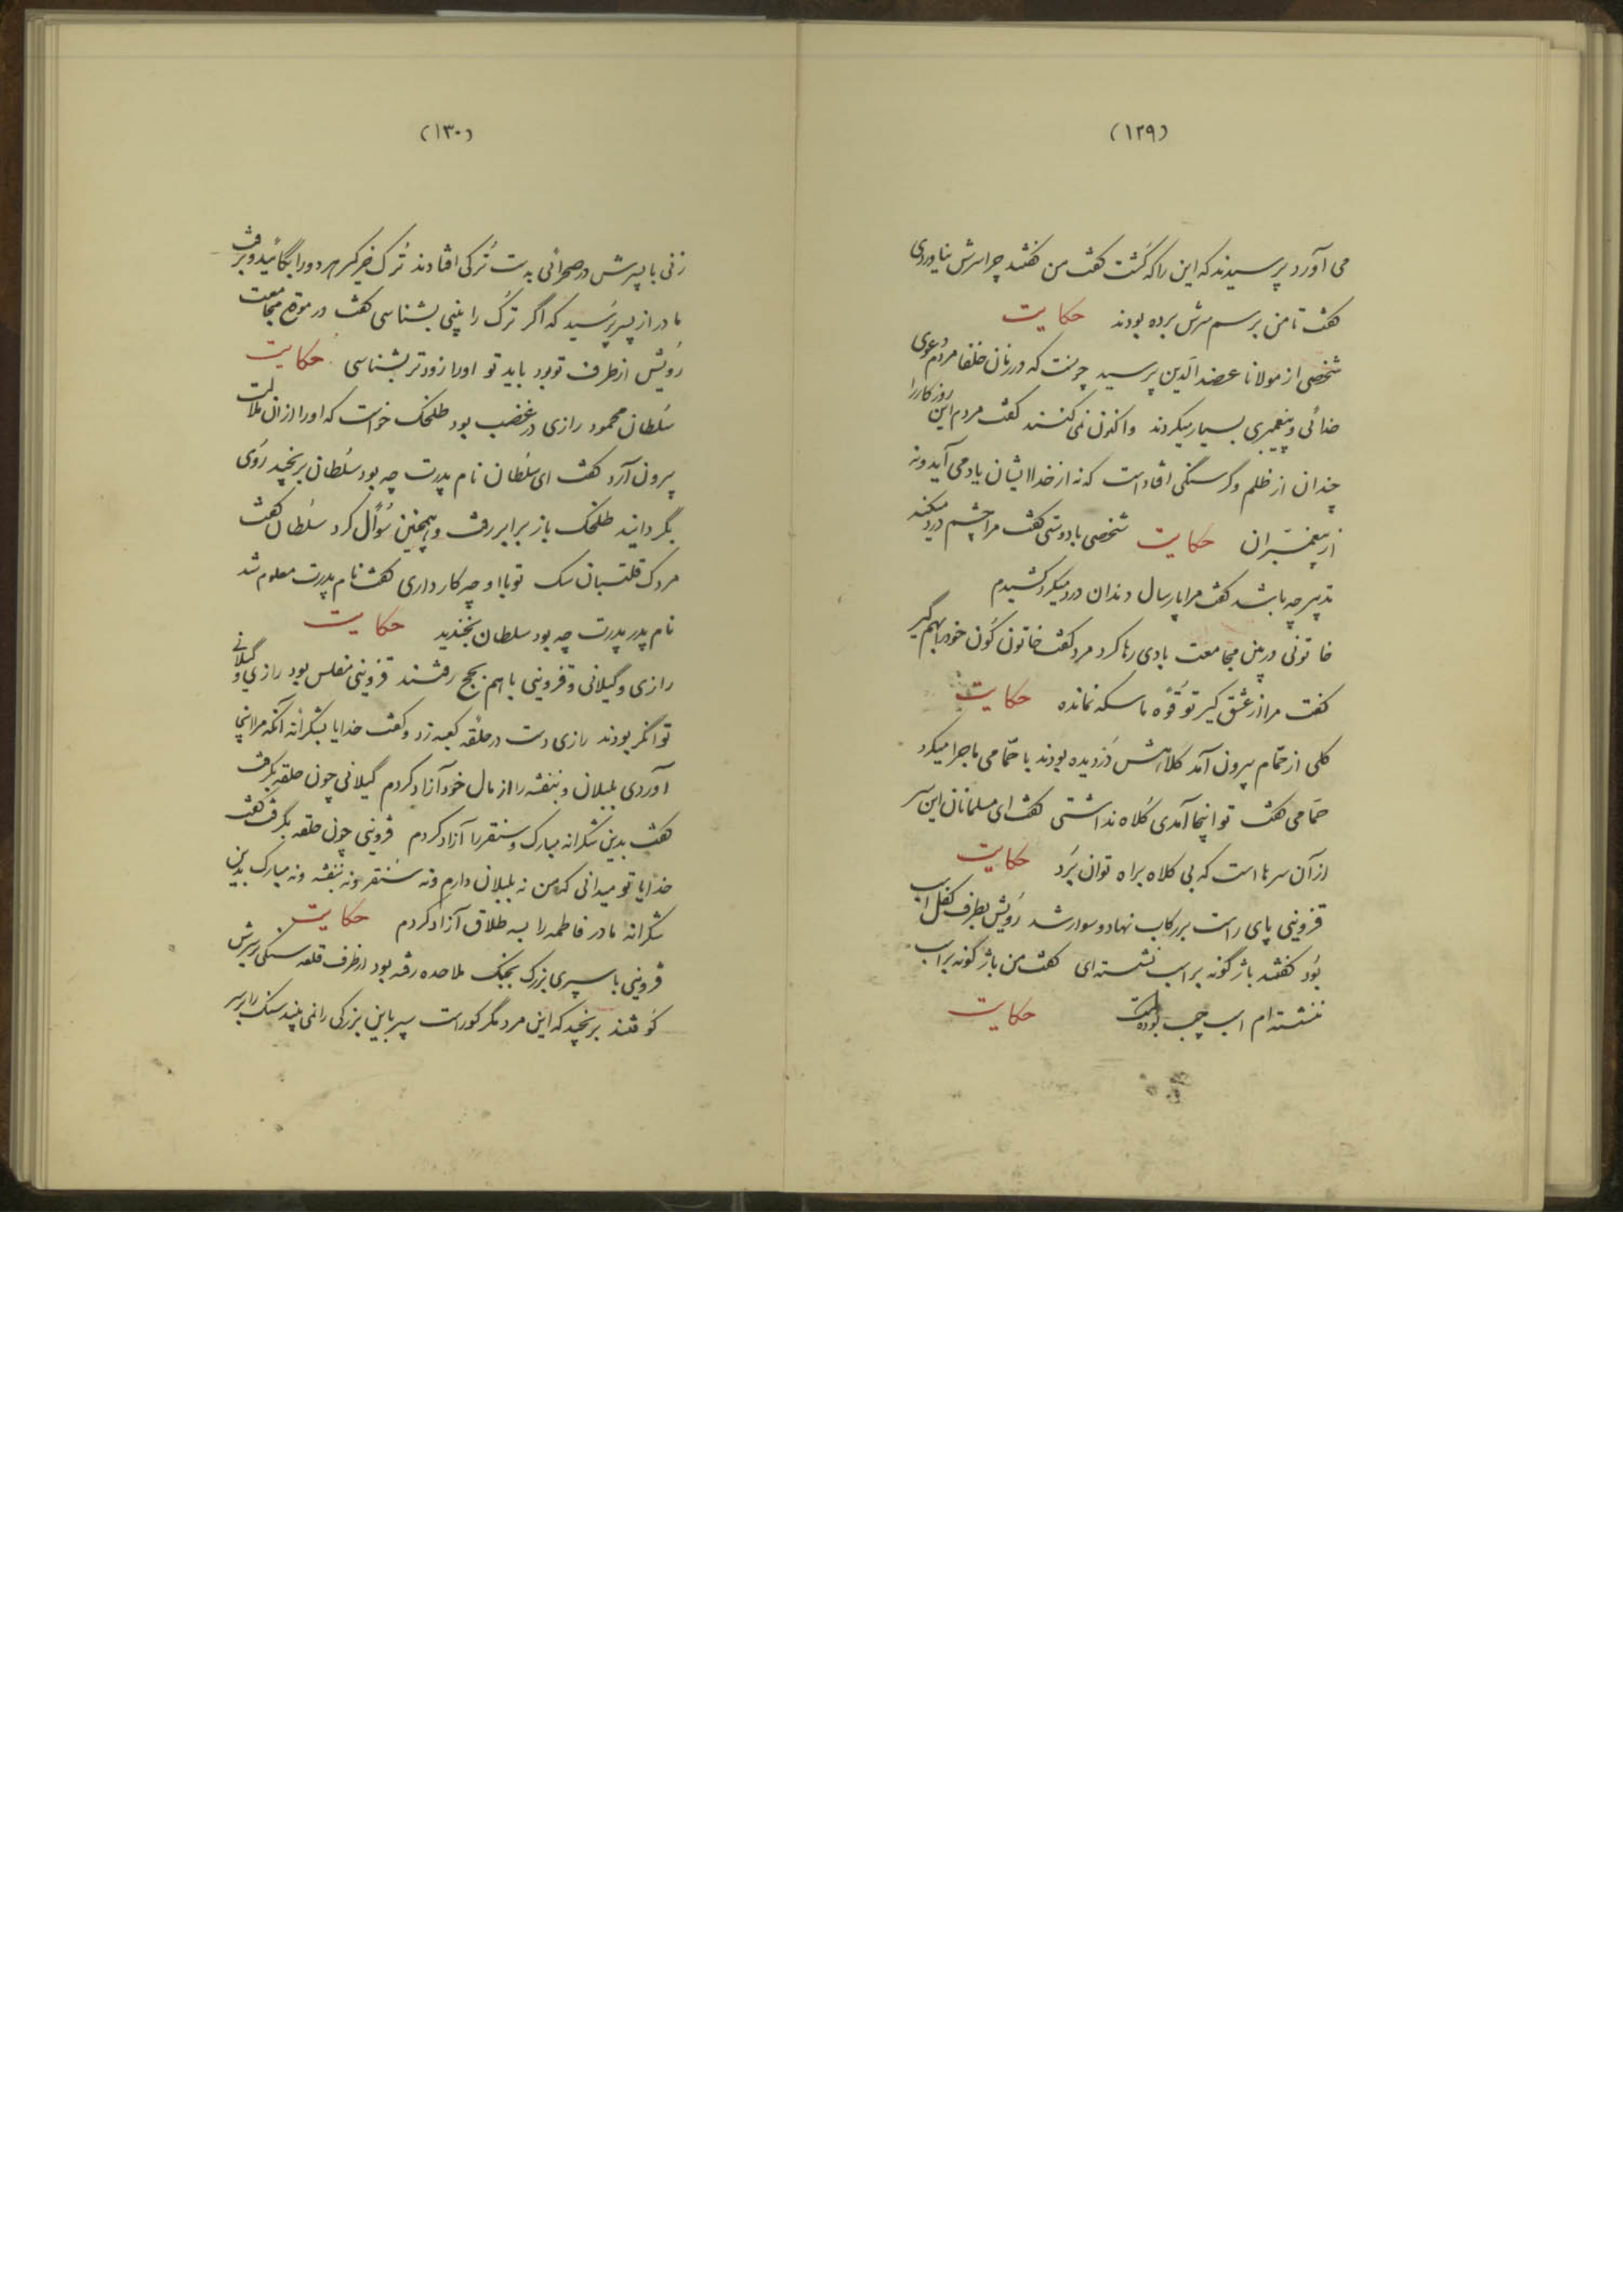 (۱۲۹)
می آورد پرسیدند که این را که کُشت گفت من گفتند چرا سرش نیاوردی
گفت تا من برسم سرش برده بودند حکایت
شخصی از مولانا عضد الدین پرسید چونست که در زمان خلفا مردم دعوی
خدائی و پیغمبری بسیار میکردند و اکنون نمی کنند گفت مردم این روزگار را
چندان از ظلم و گرسنگی افتاده است که نه از خداایشان یاد می آید و نه
از پیغمبران حکایت شخصی با دوستی گفت مرا چشم درد میکند
تدبیر چه باشد گفت مرا پارسال دندان درد میکرد کشیدم
خاتونی در عین مجامعت بادی رها کرد مرد گفت خاتون کون خود را بهم گیر
گفت مرا از عشق کیر تو قوّه ماسکه نمانده حکایت
کلی از حمّام بیرون آمد کلاهش دزدیده بودند با حمّامی ماجرا میکرد
حمّامی گفت تو اینجا آمدی کلاه نداشتی گفت ای مسلمانان این سر
از آن سرها است که بی کلاه براه توان بُرد حکایت
قزوینی پای راست بر رکاب نهاد و سوار شد رویش بطرف کفل اسب
بُود گفتند باژگونه بر اسب نشسته‌ای گفت من باژگونه بر اسب
ننشسته‌ام اسب چپ بوده است حکایت
(۱۳۰)
زنی با پسرش در صحرائی بدست تُرکی افتادند تُرک خر کیر هر دو را بگائید و برفت
مادر از پسر پرسید که اگر ترک را بینی بشناسی گفت در موقع مجامعت
رویش از طرف تو بود باید تو او را زودتر بشناسی حکایت
سُلطان محمود رازی در غضب بود طلخک خواست که او را از آن ملالت
بیرون آرد گفت ای سُلطان نام پدرت چه بود سُلطان برنجید رَوی
بگردانید طلخک باز برابر رفت و همچنین سُؤال کرد سُلطان گفت
مردک قلتبان سک تو با او چه کار داری گفت نام پدرت معلوم شد
نام پدر پدرت چه بود سلطان بخندید حکایت
رازی و گیلانی و قزوینی با هم بحج رفتند قزوینی مفلس بود رازی و گیلانی
توانگر بودند رازی دست در حلقه کعبه زد و گفت خدایا بشکرانه آنکه مرا اینجا
آوردی بلبلان و بنفشه را از مال خود آزاد کردم گیلانی چون حلقه بگرفت
گفت بدین شکرانه مبارک و سنقر را آزاد کردم قزوینی چون حلقه بگرفت گفت
خدایا تو میدانی که من نه بلبلان دارم و نه سُنقر و نه بنفشه و نه مبارک بدین
شکرانه مادر فاطمه را بسه طلاق آزاد کردم حکایت
قزوینی با سپری بزرک بجنک ملاحده رفته بود از طرف قلعه سنگی بر سرش
کوفتند برنجید که این مرد مگر کور است سپر باین بزرکی را نمی بیند سنک را بر سر